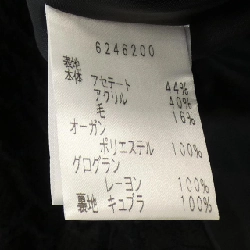 6246200
表地
本体 アセテート 44%
アクリル 40%
毛 16%
オーガン
ポリエステル 100%
グログラン
レーヨン 100%
裏地 キュプラ 100%